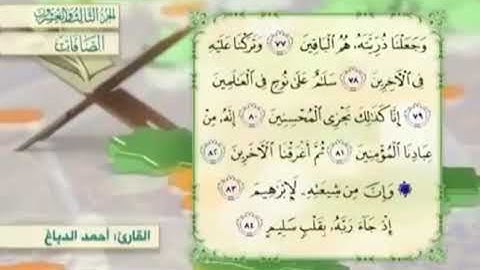 الجزء الثالث والعشرون
الصافات
وَجَعَلْنَا ذُرِّيَّتَهُۥ هُمُ ٱلْبَاقِينَ ٧٧ وَتَرَكْنَا عَلَيْهِ
فِى ٱلْـَٔاخِرِينَ ٧٨ سَلَـٰمٌ عَلَىٰ نُوحٍ فِى ٱلْعَـٰلَمِينَ
٧٩ إِنَّا كَذَٰلِكَ نَجْزِى ٱلْمُحْسِنِينَ ٨٠ إِنَّهُۥ مِنْ
عِبَادِنَا ٱلْمُؤْمِنِينَ ٨١ ثُمَّ أَغْرَقْنَا ٱلْـَٔاخَرِينَ ٨٢
وَإِنَّ مِن شِيعَتِهِۦ لَإِبْرَٰهِيمَ ٨٣
إِذْ جَآءَ رَبَّهُۥ بِقَلْبٍ سَلِيمٍ ٨٤
القارئ: أحمد الدباغ